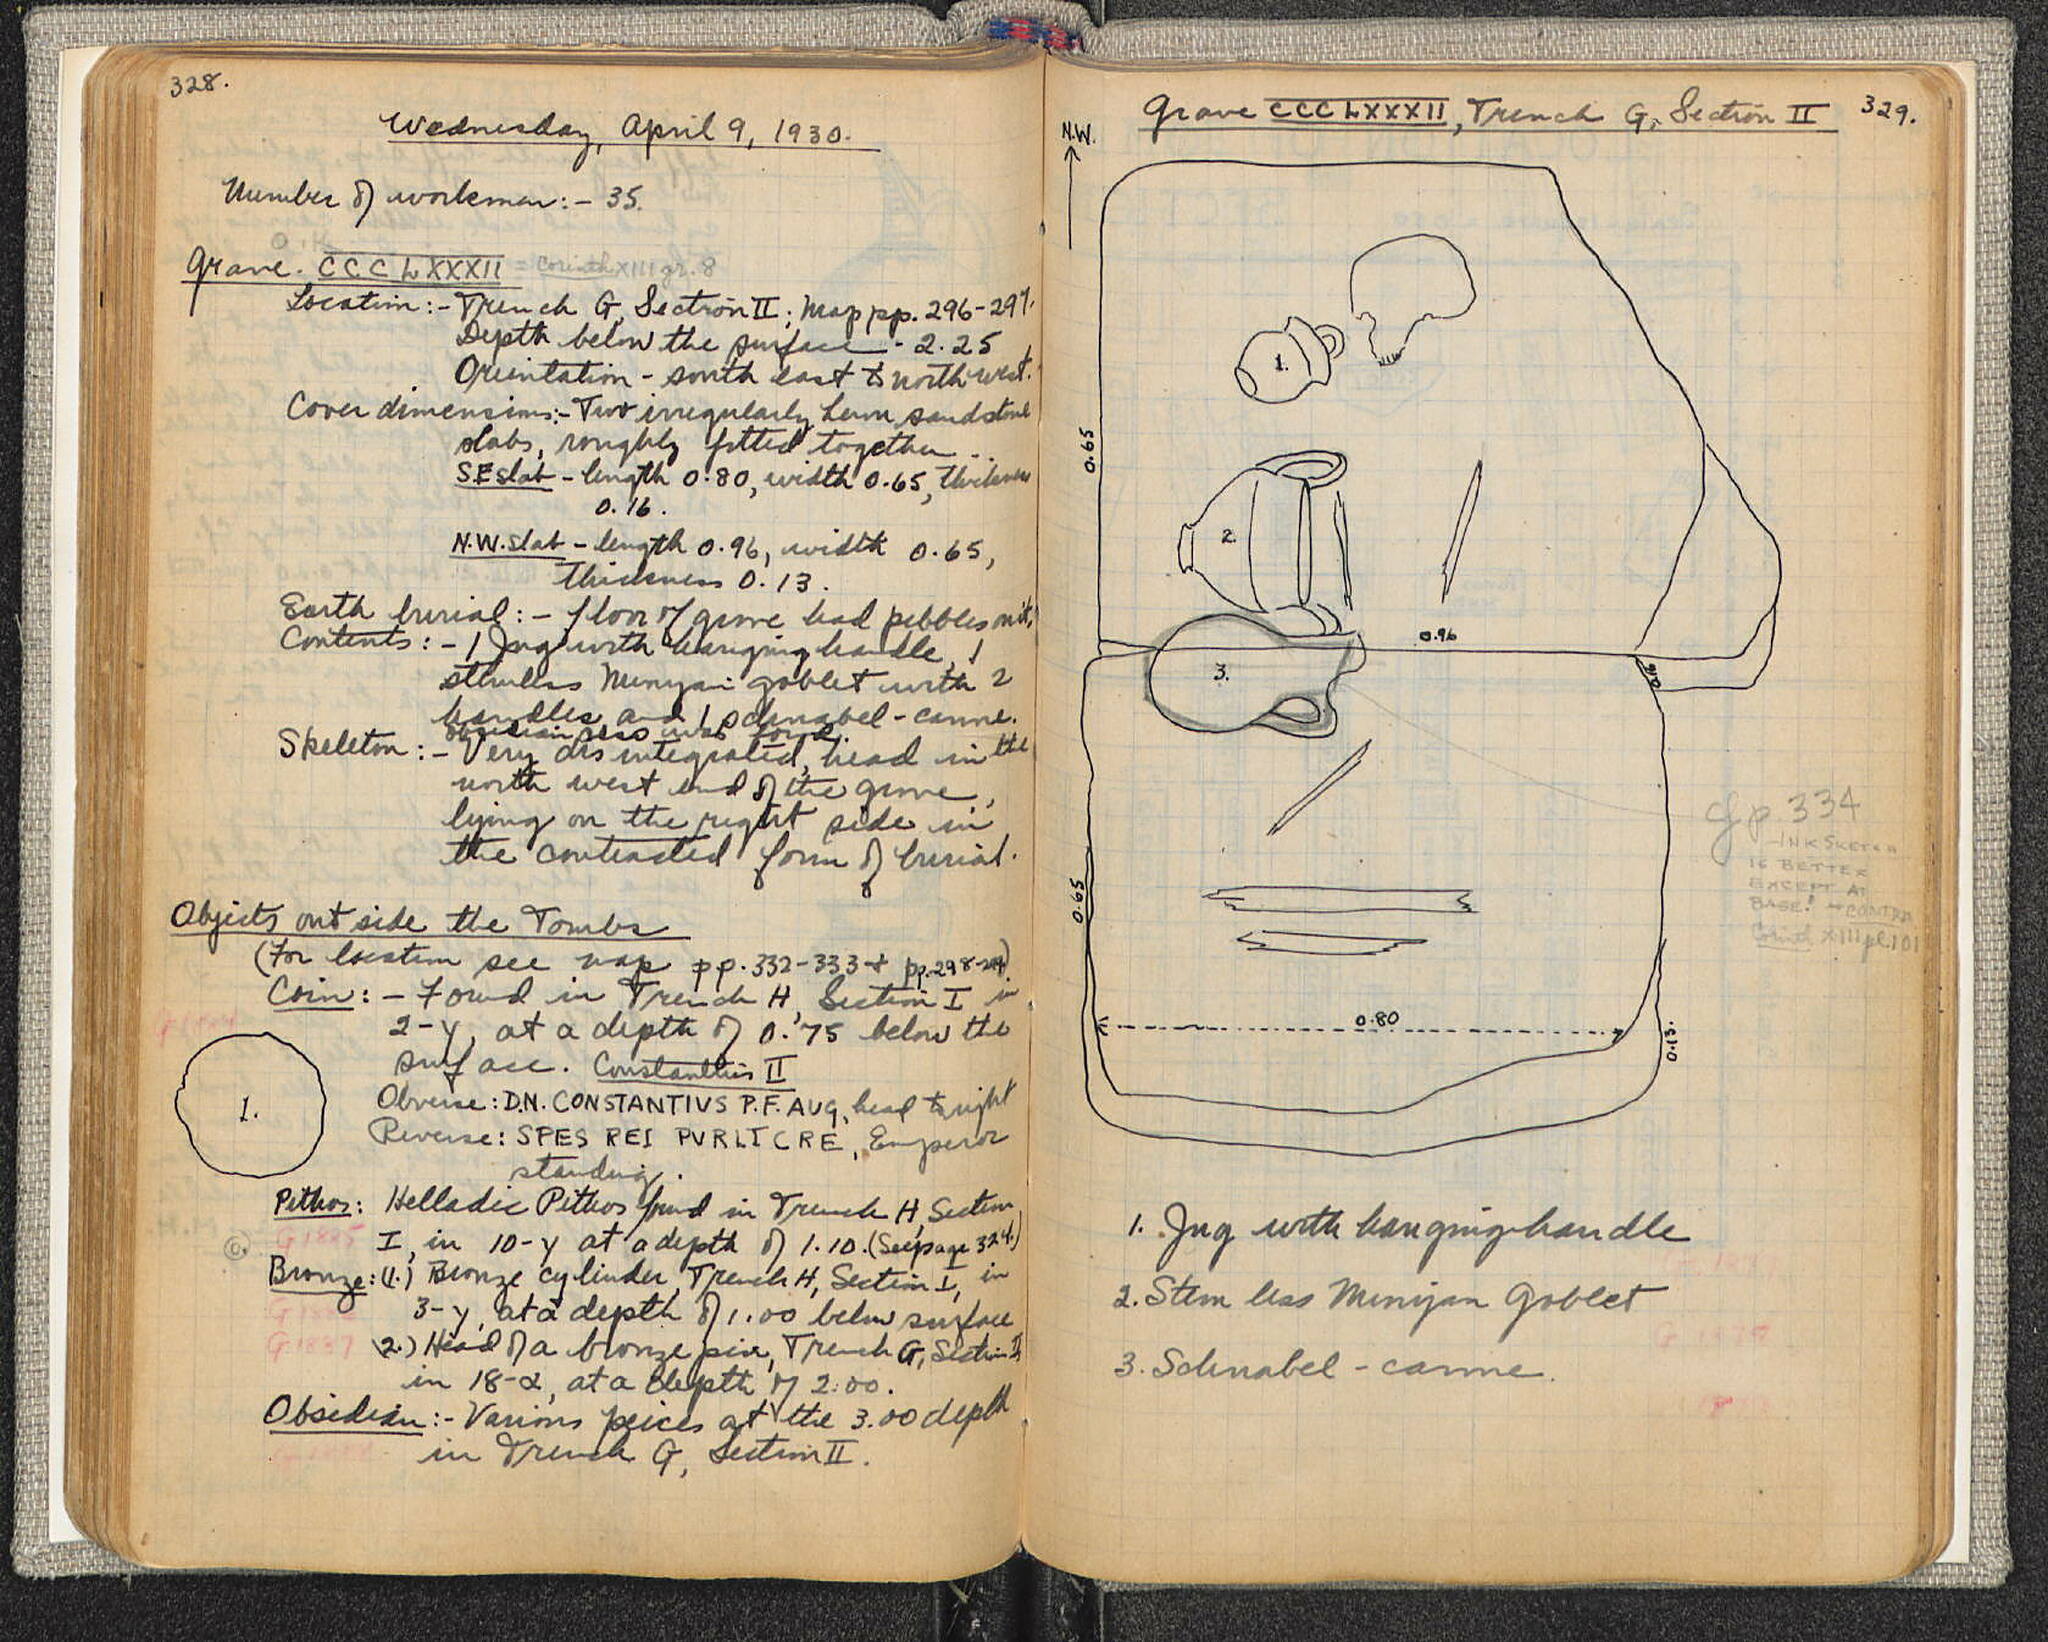 328.
Wednesday, April 9, 1930.
Number of workmen:- 35.
Grave. CCCLXXXII = Corinth XIII gr. 8
Location:- Trench G, Section II; Map pp. 296-297.
Depth below the surface - 2.25
Orientation - south east to north west.
Cover dimensions:- Two irregularly hewn sandstone
slabs, roughly fitted together..
S.E slab - length 0.80, width 0.65, thickness
0.16.
N.W. slab - length 0.96, width 0.65,
thickness 0.13.
Earth burial:- floor of grave had pebbles on it.
Contents:- 1 Jug with hanging handle, 1
stemless Minyan goblet with 2
handles, and 1 schnabel-canne.
Obsidian also was found.
Skeleton:- Very disintegrated, head in the
north west end of the grave,
lying on the right side in
the contracted form of burial.
Objects outside the Tombs
(For location see map pp. 332-333 + pp. 298-299)
Coin:- Found in Trench H, Section I in
2-y, at a depth of 0.75 below the
surface. Constantius II
1.
Obverse: D.N. CONSTANTIVS P.F. AUG, head to right
Reverse: SPES REI PVRLICRE, Emperor
standing.
Pithos: Helladic Pithos found in Trench H, Section
I, in 10-y at a depth of 1.10. (See page 324.)
G 1885
Bronze: (1.) Bronze cylinder, Trench H, Section I, in
3-y, at a depth of 1.00 below surface
G 1887
2.) Head of a bronze pin, Trench G, Section II
in 18-α, at a depth of 2.00.
Obsidian:- Various peices at the 3.00 depth
in Trench G, Section II.
Grave CCCLXXXII, Trench G, Section II
329.
N.W.
1.
0.65
2.
0.96
3.
0.16
cf p. 334
- INK SKETCH
IS BETTER
EXCEPT AT
BASE! - CONTRA
Corinth XIII pl. 101
0.65
0.80
0.13.
1. Jug with hanging handle
2. Stem less Minyan Goblet
3. Schnabel - canne.